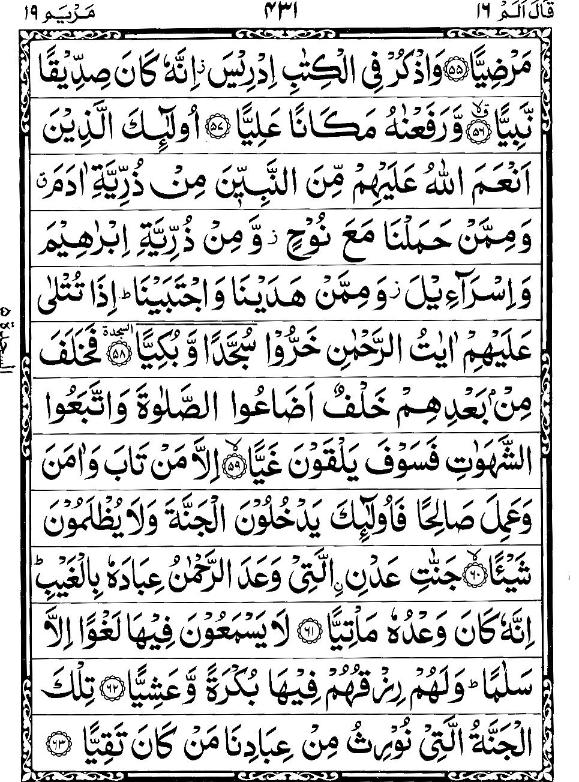 قَالَ اَلَمْ ١٦ ٤٣١ مَرْيَم ١٩
مَرْضِيًّا ﴿٥٥﴾ وَاذْكُرْ فِى الْكِتٰبِ اِدْرِيْسَ ز اِنَّهٗ كَانَ صِدِّيْقًا
نَّبِيًّا ﴿٥٦﴾ وَّرَفَعْنٰهُ مَكَانًا عَلِيًّا ﴿٥٧﴾ اُولٰٓئِكَ الَّذِيْنَ
اَنْعَمَ اللّٰهُ عَلَيْهِمْ مِّنَ النَّبِيّٖنَ مِنْ ذُرِّيَّةِ اٰدَمَ ق
وَمِمَّنْ حَمَلْنَا مَعَ نُوْحٍ ز وَّ مِنْ ذُرِّيَّةِ اِبْرٰهِيْمَ
وَاِسْرَآءِيْلَ ز وَمِمَّنْ هَدَيْنَا وَاجْتَبَيْنَا ط اِذَا تُتْلٰى
عَلَيْهِمْ اٰيٰتُ الرَّحْمٰنِ خَرُّوْا سُجَّدًا وَّ بُكِيًّا ﴿٥٨﴾ السجدة فَخَلَفَ
مِنْۢ بَعْدِهِمْ خَلْفٌ اَضَاعُوا الصَّلٰوةَ وَاتَّبَعُوا
الشَّهَوٰتِ فَسَوْفَ يَلْقَوْنَ غَيًّا ﴿٥٩﴾ اِلَّا مَنْ تَابَ وَاٰمَنَ
وَعَمِلَ صَالِحًا فَاُولٰٓئِكَ يَدْخُلُوْنَ الْجَنَّةَ وَلَا يُظْلَمُوْنَ
شَيْئًا ﴿٦٠﴾ جَنّٰتِ عَدْنِ ۨالَّتِىْ وَعَدَ الرَّحْمٰنُ عِبَادَهٗ بِالْغَيْبِ ط
اِنَّهٗ كَانَ وَعْدُهٗ مَاْتِيًّا ﴿٦١﴾ لَا يَسْمَعُوْنَ فِيْهَا لَغْوًا اِلَّا
سَلٰمًا ط وَلَهُمْ رِزْقُهُمْ فِيْهَا بُكْرَةً وَّعَشِيًّا ﴿٦٢﴾ تِلْكَ
الْجَنَّةُ الَّتِىْ نُوْرِثُ مِنْ عِبَادِنَا مَنْ كَانَ تَقِيًّا ﴿٦٣﴾
السجدة ٥